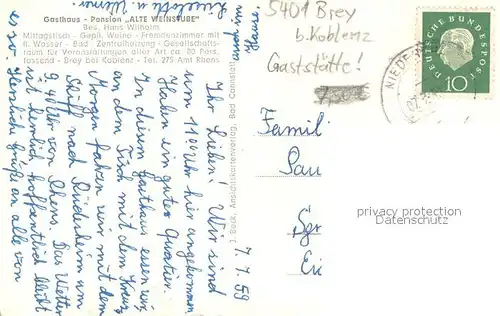 Gasthaus - Pension „ALTE WEINSTUBE"
Bes. Hans Wilhelm
Mittagstisch - Gepfl. Weine - Fremdenzimmer mit
fl. Wasser - Bad - Zentralheizung - Gesellschafts-
raum für Veranstaltungen aller Art ca. 80 Pers.
fassend - Brey bei Koblenz - Tel. 275 Amt Rhens
7.7.59
Ihr Lieben! Wir sind
um 1100 Uhr hier angekommen
Haben ein gutes Quartier.
In diesem Gasthaus essen wir,
an dem Tisch mit dem Kreuz
Morgen fahren wir mit dem
Schiff nach Rüdesheim um
9,40 Uhr von Rhens. Das Wetter
ist ziemlich hoffentlich bleibt
es so. Herzliche Grüße an alle von
Liselotte u. Werner
J. Beck, Ansichtskartenverlag, Bad Cannstatt
5401 Brey
b. Koblenz
Gaststätte!
DEUTSCHE BUNDESPOST
10
NIEDER
Famil
Pau
privacy protection
Datenschutz